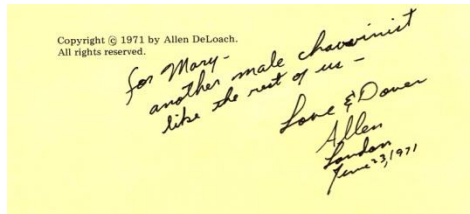 Copyright © 1971 by Allen DeLoach.
All rights reserved.
for Mary-
another male chauvinist
like the rest of us -
Love & Dover
Allen
London
June 23, 1971